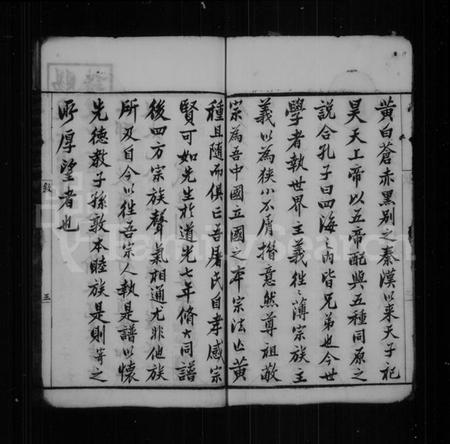 黃白蒼赤黑別之秦漢以來天子祀
昊天上帝以五帝配與五種同原之
說合孔子曰四海之內皆兄弟也今世
學者執世界主義往往薄宗族主
義以為狹小不屑措意然尊祖敬
宗為吾中國立國之本宗法亡黃
種且隨而俱亡吾屠氏自孝感宗
賢可如先生於道光七年脩大同譜
後四方宗族聲氣相通尤非他族
所及自今以往吾宗人執是譜以懷
先德教子孫敦本睦族是則 之
所厚望者也
敘
三
FamilySearch